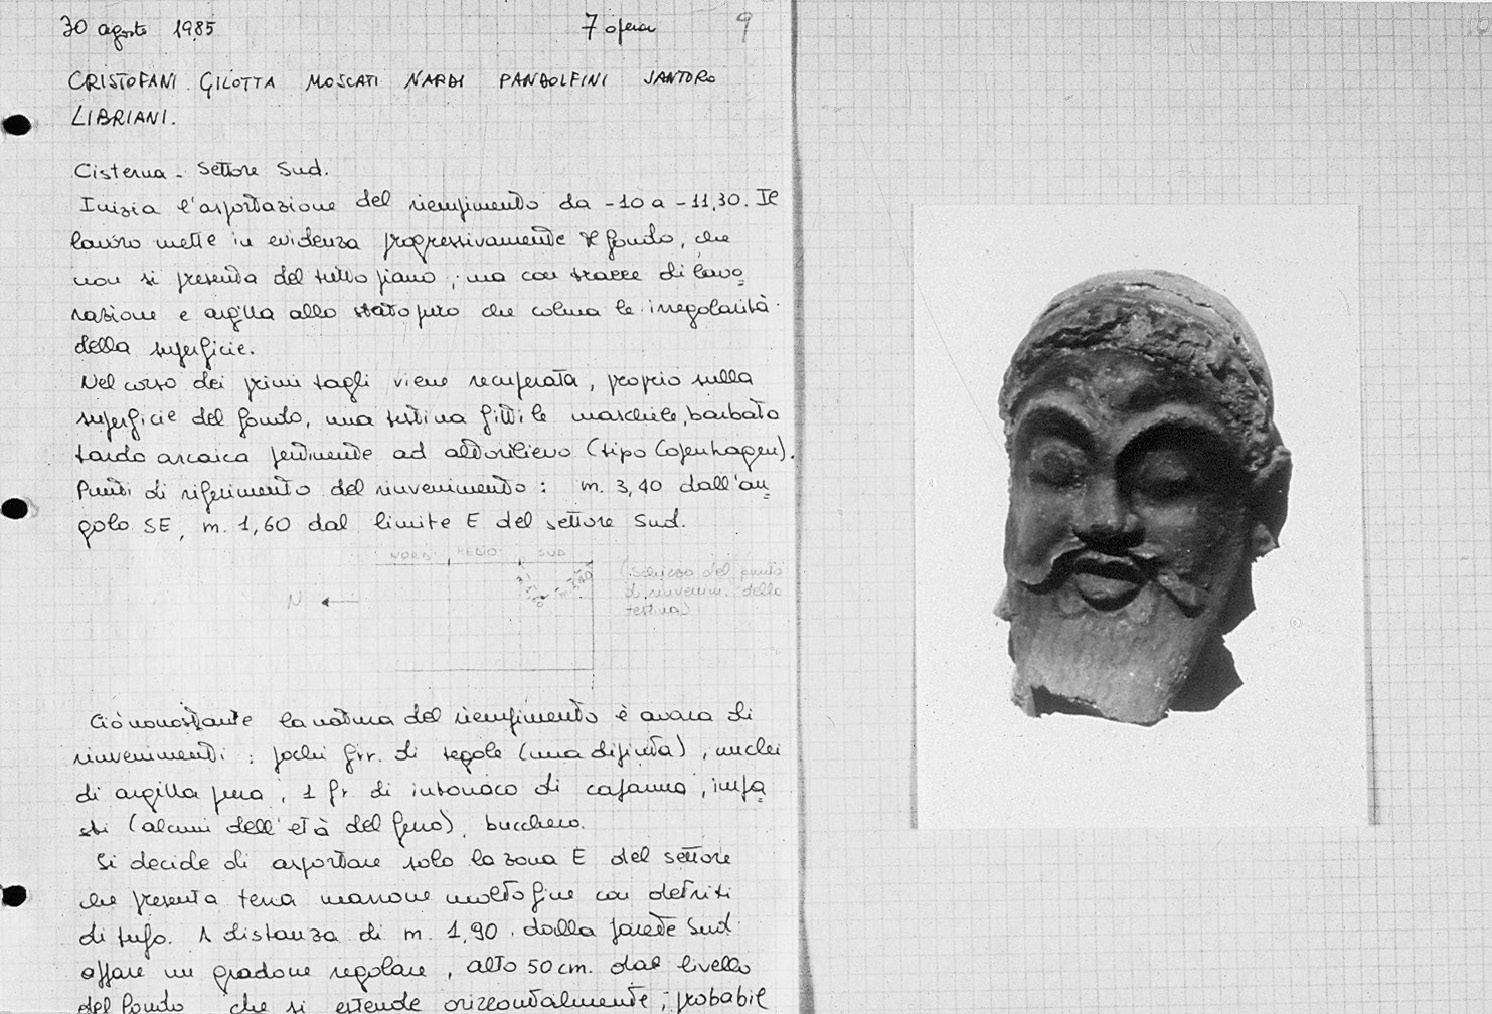 30 agosto 1985 7 operai 9
CRISTOFANI GILOTTA MOSCATI NARDI PANDOLFINI SANTORO
LIBRIANI.
Cisterna - Settore Sud.
Inizia l'asportazione del riempimento da -10 a -11,30. Il
lavoro mette in evidenza progressivamente il fondo, che
non si presenta del tutto piano, ma con tracce di lavo=
razione e argilla allo stato puro che colma le irregolarità
della superficie.
Nel corso dei primi tagli viene recuperata, proprio sulla
superficie del fondo, una testina fittile maschile, barbato
tardo arcaica pertinente ad altorilievo (tipo Copenhagen).
Punti di riferimento del rinvenimento: m. 3,40 dall'an=
golo SE, m. 1,60 dal limite E del settore Sud.
NORD MEDIO SUD
(schizzo del punto
di rinvenim. della
testina)
N
Ciò nonostante la natura del riempimento è avara di
rinvenimenti: pochi frr. di tegole (una dipinta), nuclei
di argilla pura, 1 fr. di intonaco di capanna, impa=
sti (alcuni dell'età del ferro), bucchero.
Si decide di asportare solo la zona E del settore
che presenta terra marrone molto fine con detriti
di tufo. A distanza di m. 1,90 dalla parete Sud
appare un gradone regolare, alto 50 cm. dal livello
del fondo che si estende orizzontalmente; probabil
10